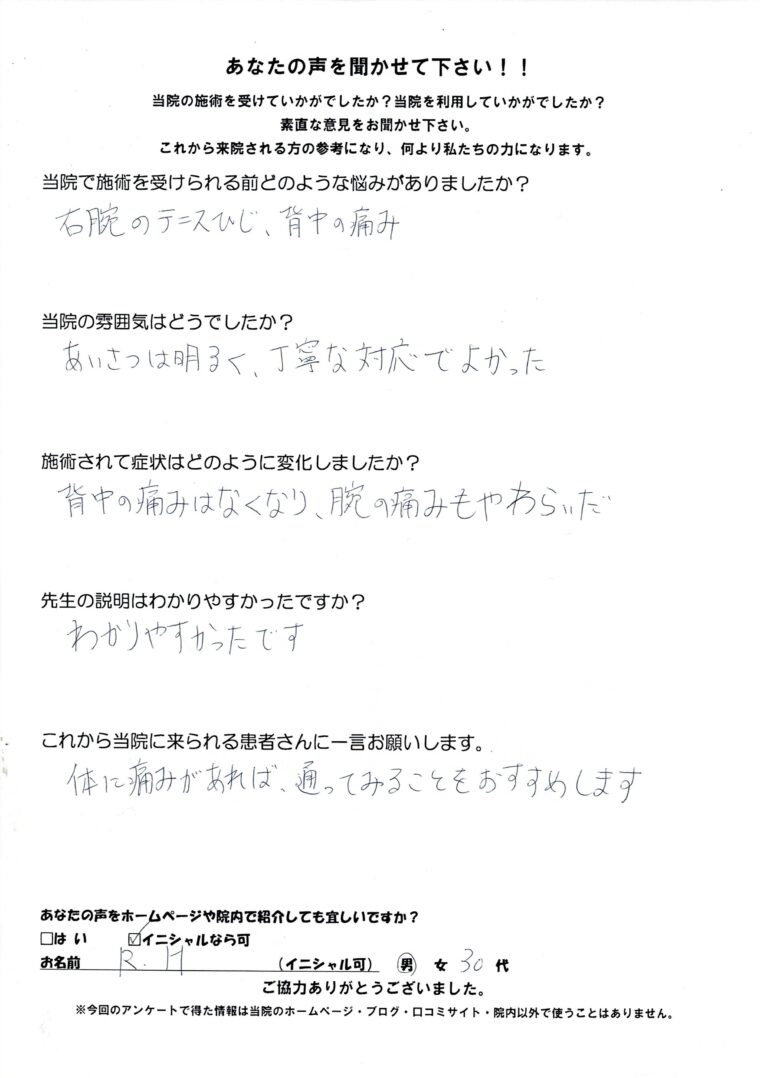 あなたの声を聞かせて下さい！！
当院の施術を受けていかがでしたか？当院を利用していかがでしたか？
素直な意見をお聞かせ下さい。
これから来院される方の参考になり、何より私たちの力になります。
当院で施術を受けられる前どのような悩みがありましたか？
右腕のテニスひじ、背中の痛み
当院の雰囲気はどうでしたか？
あいさつは明るく、丁寧な対応でよかった
施術されて症状はどのように変化しましたか？
背中の痛みはなくなり、腕の痛みもやわらいだ
先生の説明はわかりやすかったですか？
わかりやすかったです
これから当院に来られる患者さんに一言お願いします。
体に痛みがあれば、通ってみることをおすすめします
あなたの声をホームページや院内で紹介しても宜しいですか？
□はい ☑イニシャルなら可
お名前 R.H （イニシャル可） 男 女 30代
ご協力ありがとうございました。
※今回のアンケートで得た情報は当院のホームページ・ブログ・口コミサイト・院内以外で使うことはありません。